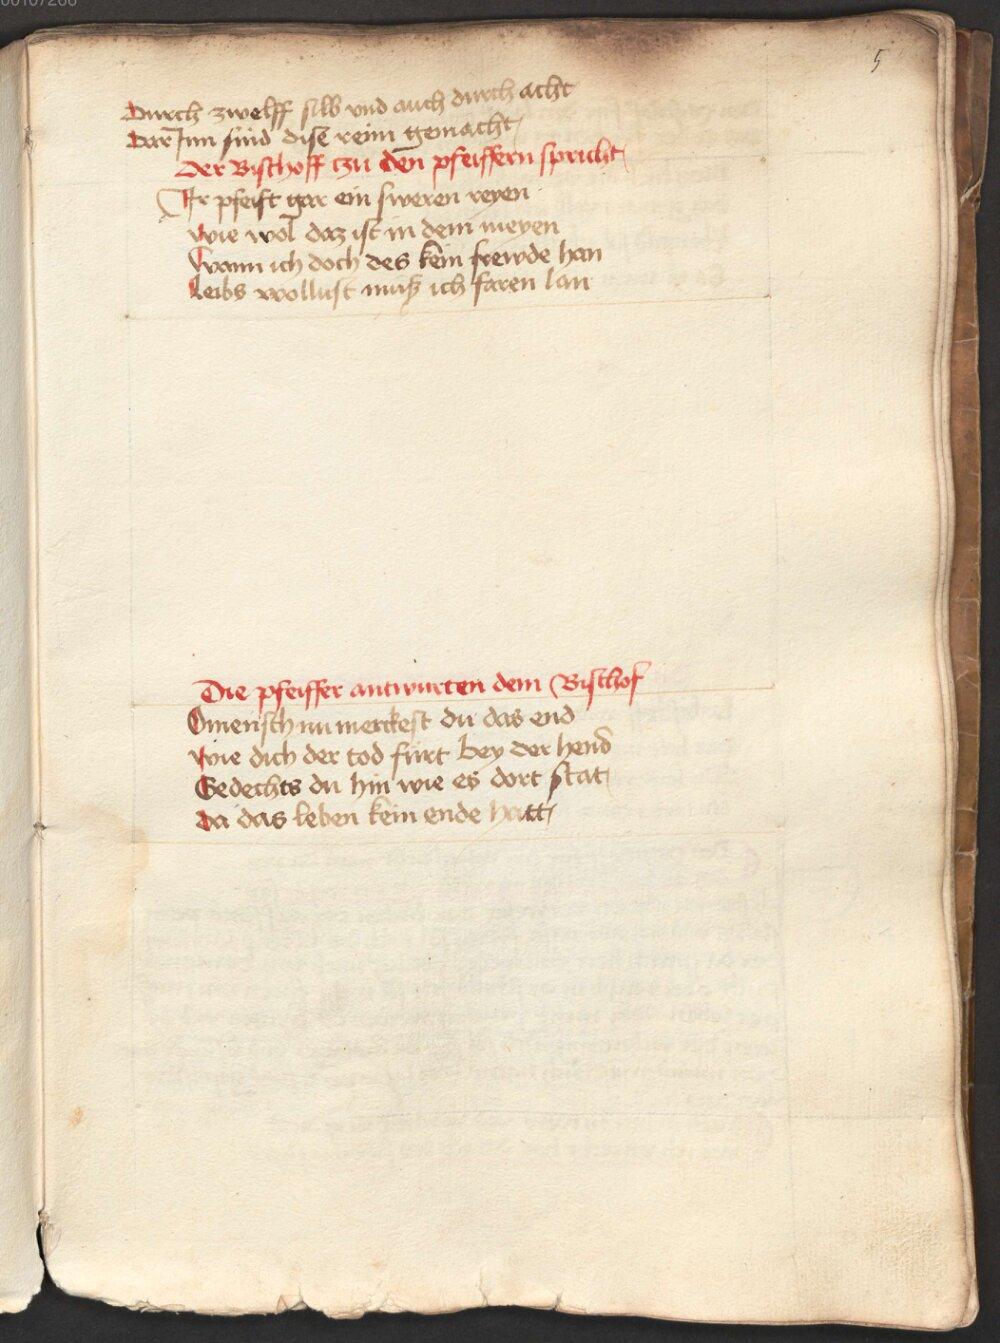 00107266
5
Durch zwelff silb vnd auch durch acht
Dar Inn sind dise reim gemacht
Der Bischoff tzu den pfeiffern spricht
Ir pfeift gar ein sweren reyen
wie wol daz ist in dem meyen
wann ich doch des kein frewde han
leibs wollust muß ich faren lan
Die pfeiffer antwurten dem Bischof
O mensch nu merckest du das end
wie dich der tod fürt bey der hend
Gedechts du hin wie es dort stat
Da das leben kein ende hatt